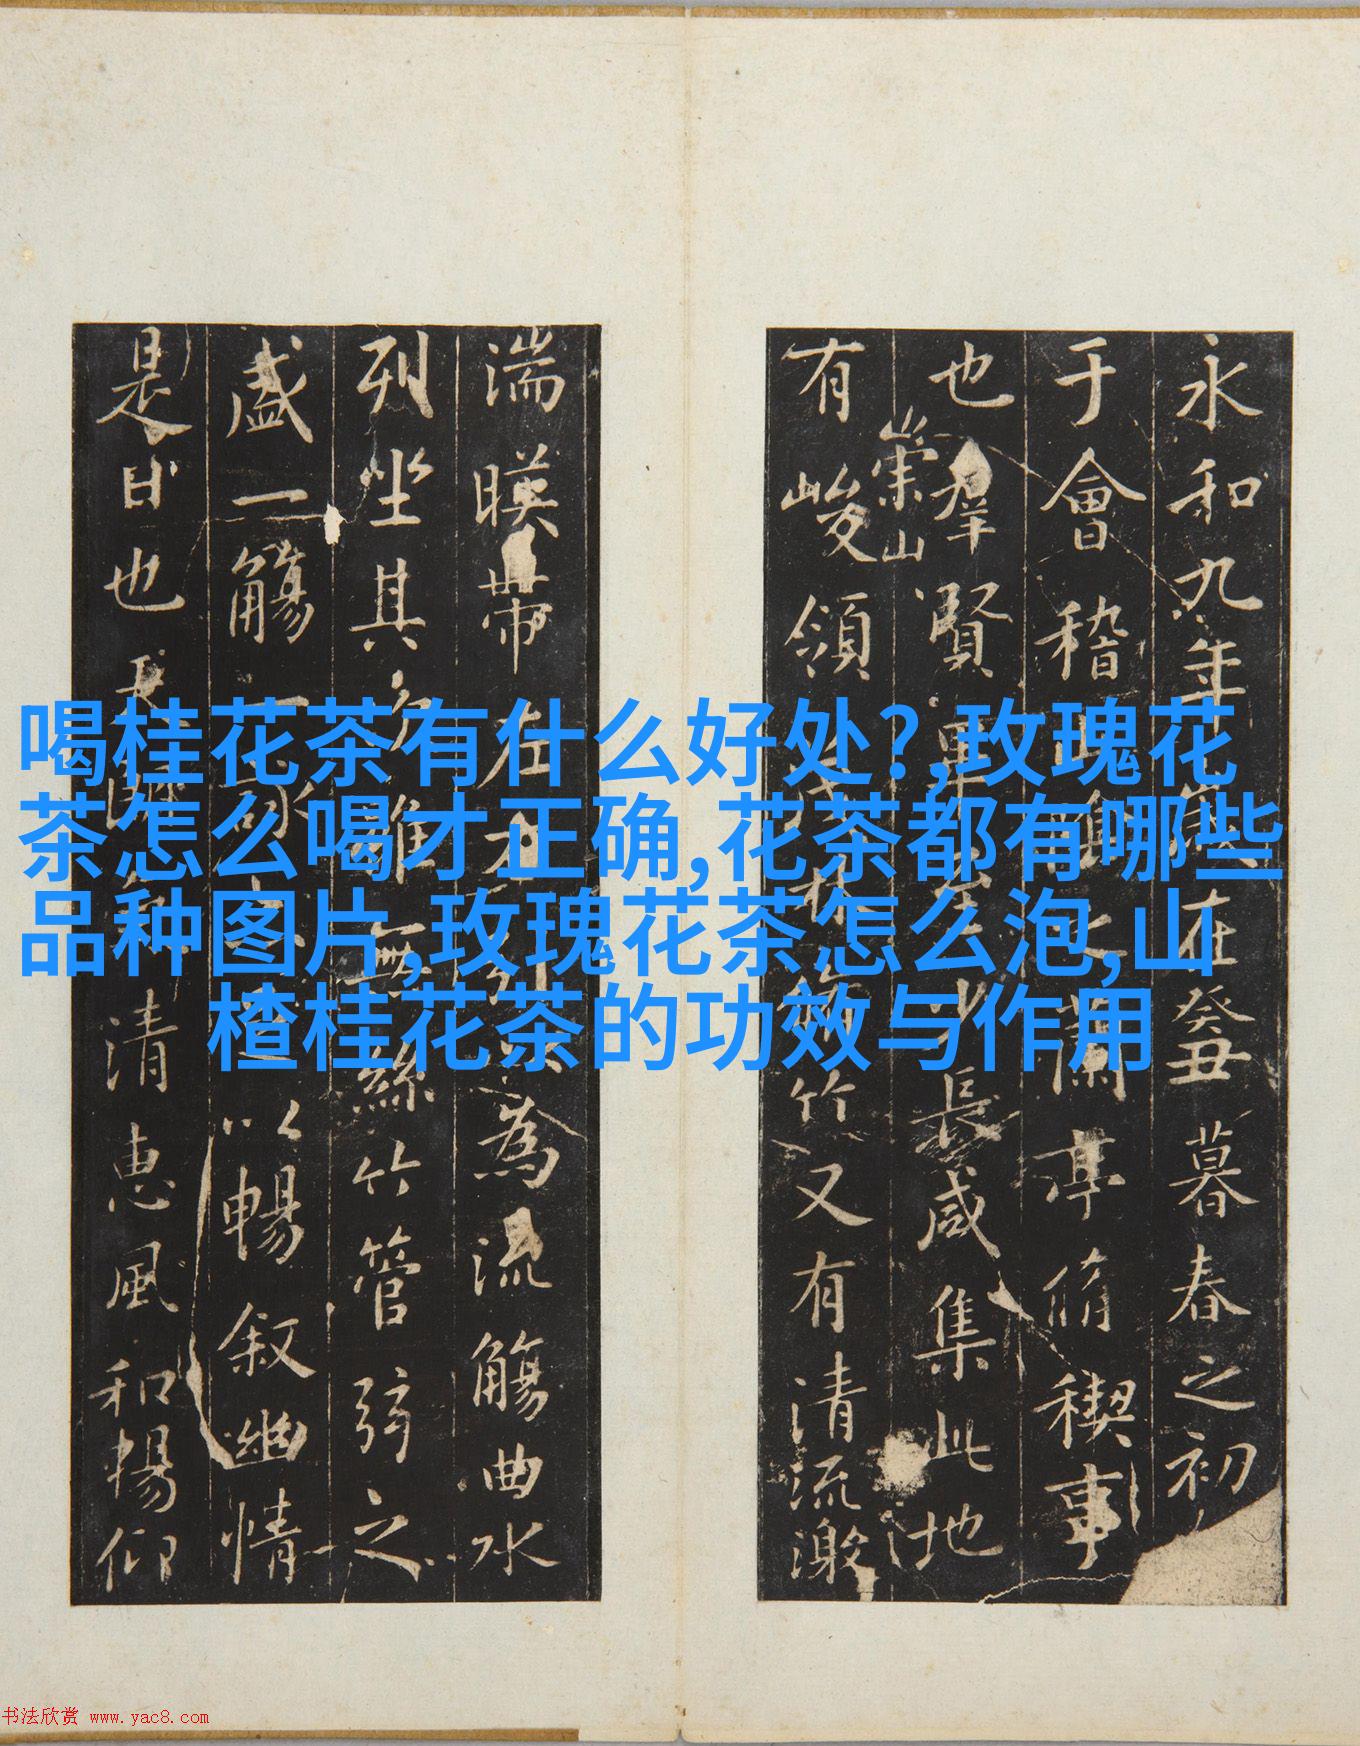 喝桂花茶有什么好处?,玫瑰花
茶怎么喝才正确,花茶都有哪些
品种图片,玫瑰花茶怎么泡,山
楂桂花茶的功效与作用
永和九年在癸丑暮春之初
于會稽蘭亭脩稧事
也羣賢畢至少長咸集此地
有崇山峻領林竹又有清流激
湍暎帶左右為流觴曲水
列坐其次雖無絲竹管弦之
盛一觴一詠以暢叙幽情
是日也天朗清惠風和暢仰
书法欣赏 www.yac8.com